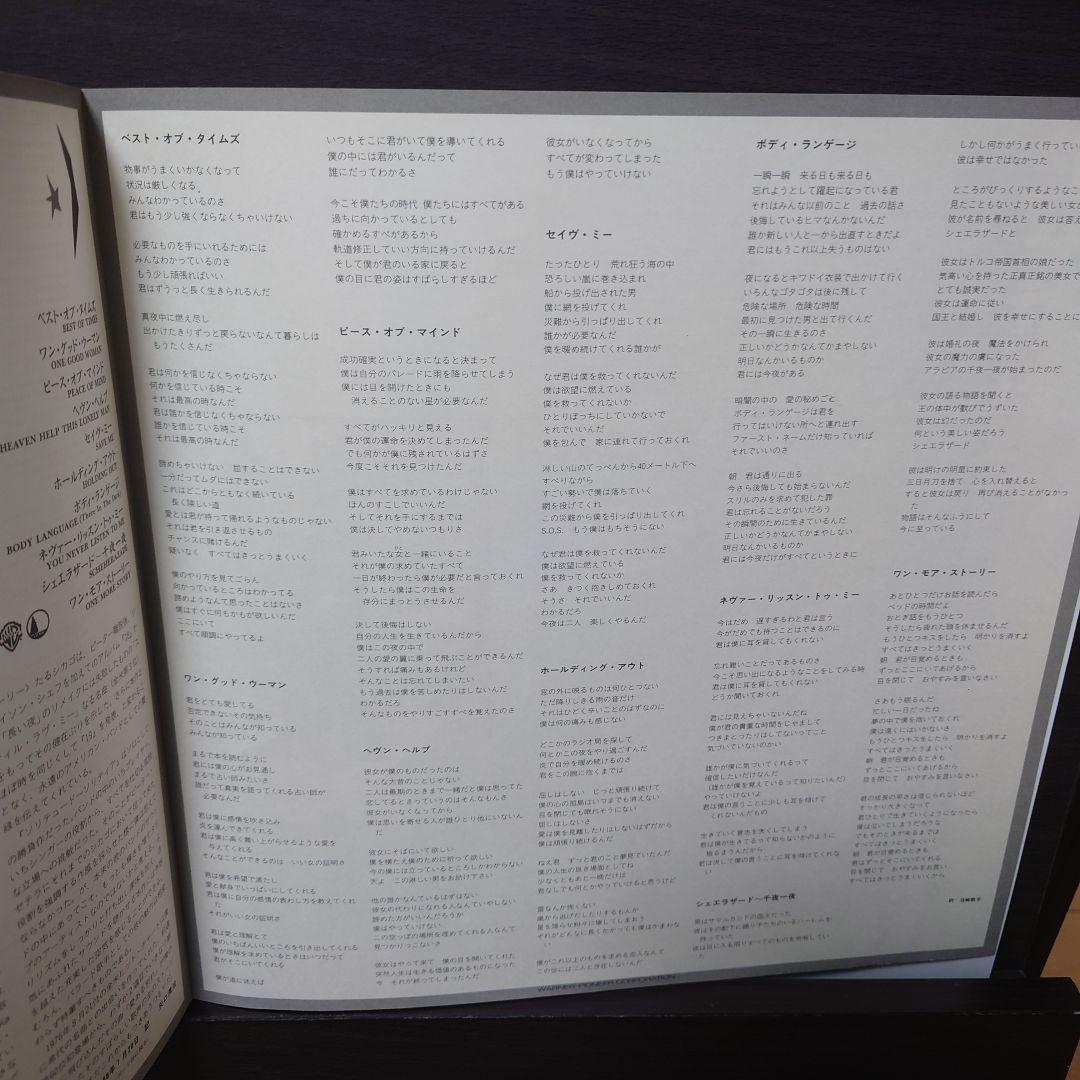 ベスト・オブ・タイムズ
BEST OF TIMES
ワン・グッド・ウーマン
ONE GOOD WOMAN
ピース・オブ・マインド
PEACE OF MIND
ヘヴン・ヘルプ
HEAVEN HELP THIS LONELY MAN
セイヴ・ミー
SAVE ME
ホールディング・アウト
HOLDING OUT
ボディ・ランゲージ
BODY LANGUAGE (There In The Dark)
ネヴァー・リッスン・トゥ・ミー
YOU NEVER LISTEN TO ME
シェエラザード〜千夜一夜
SCHEHERAZADE
ワン・モア・ストーリー
ONE MORE STORY
ベスト・オブ・タイムズ
物事がうまくいかなくなって
状況は厳しくなる
みんなわかっているのさ
君はもう少し強くならなくちゃいけない
必要なものを手にいれるためには
みんなわかっているのさ
もう少し頑張ればいい
君はずうっと長く生きられるんだ
真夜中に燃え尽し
出かけたきりずっと戻らないなんて暮らしは
もうたくさんだ
君は何かを信じなくちゃならない
何かを信じている時こそ
それは最高の時なんだ
君は誰かを信じなくちゃならない
誰かを信じている時こそ
それは最高の時なんだ
諦めちゃいけない 屈することはできない
一分だってムダにはできない
これはどこからともなく続いている
長く険しい道
愛とは君が持って帰れるようなものじゃない
それは君を引き返させるもの
チャンスに賭けるんだ
疑いなく すべてはきっとうまくいく
僕のやり方を見てごらん
向かっているところはわかってる
諦めようなんて思ったことはないさ
僕はすぐに何もかもが欲しいんだ
ここにいて
すべて順調にやってるよ
ワン・グッド・ウーマン
君をとても愛してる
否定できないその気持ち
そのことはみんなが知っている
みんなが知っている
まるで本を読むように
君には僕の心がお見通し
まるで占い師みたいさ
誰だって真実を語ってくれる占い師が
必要なんだ
君は僕に感情を吹き込み
炎を運んできてくれる
君は僕に高く舞い上がらせるような愛を
与えてくれる
そんなことができるのは いい女の証明さ
君は僕を希望で満たし
愛と献身でいっぱいにしてくれる
君は僕に自分の感情の表わし方を教えてくれた
それがいい女の証明さ
君は愛と理解とで
僕のいちばんいいところを引き出してくれる
僕が理解を求めているときはいつだって
君がそこにいてくれる
僕が道に迷えば
いつもそこに君がいて僕を導いてくれる
僕の中には君がいるんだって
誰にだってわかるさ
今こそ僕たちの時代 僕たちにはすべてがある
過ちに向かっているとしても
確かめるすべがあるから
軌道修正していい方向に持っていけるんだ
そして僕が君のいる家に戻ると
僕の目に君の姿はすばらしすぎるほど
ピース・オブ・マインド
成功確実というときになると決まって
僕は自分のパレードに雨を降らせてしまう
僕には目を開けたときにも
消えることのない星が必要なんだ
すべてがハッキリと見える
君が僕の運命を決めてしまったんだ
でも何かが僕に残されているはずさ
今度こそそれを見つけたんだ
僕はすべてを求めているわけじゃない
ほんのすこしでいいんだ
そしてそれを手にするまでは
僕は決してやめないつもりさ
君みたいな女と一緒にいること
それが僕の求めていたすべて
一日が終わったら僕が必要だと言っておくれ
そうしたら僕はこの生命を
存分にまっとうさせるんだ
決して後悔はしない
自分の人生を生きているんだから
僕はこの夜の中で
二人の愛の翼に乗って飛ぶことができるんだ
そうすれば痛みもあるけれど
そんなことは忘れてしまいたい
もう過去は僕を苦しめたりはしないんだ
わかるだろ
そんなものをやりすごすすべを覚えたのさ
ヘヴン・ヘルプ
彼女が僕のものだったのは
そんな大昔のことじゃない
二人は最期のときまで一緒だと僕は思ってた
恋してるときっていうのはそんなもんさ
彼女がいなくなってから
僕は思いを寄せる人が誰ひとり他にいないんだ
彼女にそばにいて欲しい
僕を横たえ僕のために祈って欲しい
今の僕には立っているところしかわからない
天よ この淋しい男をお助け下さい
他の誰かなんているはずはない
彼女の代わりになれる人なんていやしない
諦めた方がいいんだろうか
僕はやっていけない
この空っぽの場所を埋めてくれる人なんて
見つかりっこないさ
彼女はやって来て 僕の目を開いてくれた
突然人生は生きる価値のあるものになった
今 それが終ってしまったんだ
彼女がいなくなってから
すべてが変わってしまった
もう僕はやっていけない
セイヴ・ミー
たったひとり 荒れ狂う海の中
恐ろしい嵐に巻き込まれ
船から投げ出された男
僕に網を投げてくれ
災難から引っぱり出してくれ
誰かが必要なんだ
僕を暖め続けてくれる誰かが
なぜ君は僕を救ってくれないんだ
僕は欲望に燃えている
僕を救ってくれないか
ひとりぼっちにしていかないで
それでいいんだ
僕を包んで 家に連れて行っておくれ
淋しい山のてっぺんから40メートル下へ
すべりながら
すごい勢いで僕は落ちていく
網を投げてくれ
この災難から僕を引っぱり出してくれ
S.O.S. もう僕はもちそうにない
なぜ君は僕を救ってくれないんだ
僕は欲望に燃えている
僕を救ってくれないか
さあ きつく抱きしめておくれ
そうさ それでいいんだ
わかるだろ
今夜は二人 楽しくやるんだ
ホールディング・アウト
窓の外に映るものは何ひとつない
ただ降りしきる雨の音だけ
それはひどく辛いことのはずなのに
僕は何の痛みも感じない
どこかのラジオ局を探して
何とかこの夜をやり過ごすんだ
炎で自分を暖め続けるのさ
君をこの腕に抱くまでは
屈しはしない じっと頑張り続けて
僕の心の孤島はいつまでも消えない
目を閉じても眠れそうにない
屈しはしないさ
愛は僕を見離したりはしないはずだから
僕は頑張り続けるんだ
ねえ君 ずっと君のこと夢見ていたんだ
僕の人生の良き場面としてね
少なくともあと一晩だけは
君なしでも何とかやっていけると思うけど
雷なんか怖くない
嵐から逃げだしたりするもんか
星を降らせ粉々に壊してしまおう
それがどんなに長くかかっても僕はかまわない
僕がこれ以上のものを求める恋人なんて
この世には二人と存在しないんだ
ボディ・ランゲージ
一瞬一瞬 来る日も来る日も
忘れようとして躍起になっている君
それはみんな以前のこと 過去の話さ
後悔しているヒマなんかないんだ
誰か新しい人と一から出直すときだよ
君にはもうこれ以上失うものはない
夜になるとキワドイ衣装で出かけて行く
いろんなゴタゴタは後に残して
危険な場所 危険な時間
最初に見つけた男と出て行くんだ
その一瞬に生きるのさ
正しいかどうかなんてかまやしない
明日なんかいるものか
君には今夜がある
暗闇の中の 愛の秘めごと
ボディ・ランゲージは君を
行ってはいけない所へと連れ出す
ファースト・ネームだけ知っていれば
それでいいのさ
朝 君は通りに出る
今さら後悔しても始まらないんだ
スリルのみを求めて犯した罪
君は忘れることがないだろう
その瞬間のために生きているんだ
正しいかどうかなんてかまやしない
明日なんかいるものか
君には今夜だけがすべてというときに
ネヴァー・リッスン・トゥ・ミー
今はだめ 遅すぎるわと君は言う
今がだめでも待つことはできるのに
君は僕に耳を貸してもくれない
忘れ難いことだってあるものさ
今こそ思い出になるようなことをしてみる時
君は僕に耳を貸してもくれない
どうか聞いておくれ
君には見えちゃいないんだね
僕が君の貴重な時間をじゃまして
つきまとったりはしてないってこと
気づいていないのかい
誰かが僕に気づいてくれるって
確信したいだけなんだ
（誰かが僕を覚えているって知りたいんだ）
やっていけないよ
君は僕の言うことに少しも耳を傾けて
くれないんだもの
生きていく意志を失くしてしまう
君は僕が生きてるって知らないかのように
振るまうんだから
君は決して僕の言うことに耳を傾けてくれない
シェエラザード〜千夜一夜
男はサマルカンドの国王だった
彼はその配下に踊り子たちのいるハーレムを
持っていた
彼は目に入る限りすべてのものを所有していた
しかし何かがうまく行ってい
彼は幸せではなかった
ところがびっくりするようなこ
見たこともないような美しい女が
彼が名前を尋ねると 彼女は答え
シェエラザードと
彼女はトルコ帝国首相の娘だった
気高い心を持った正真正銘の美女で
とても誠実だった
彼女は運命に従い
国王と結婚し 彼を幸せにすることに
彼は婚礼の夜 魔法をかけられ
彼女の魔力の虜になった
アラビアの千夜一夜が始まったのだ
彼女の語る物語を聞くと
王の体中が歓びでうずいた
彼女は幻だったのだ
何という美しい姿だろう
シェエラザード
彼女は明けの明星に約束した
三日月刀を捨て 心を入れ替えると
すると彼女は戻り 再び消えることがなかった
物語はそんなふうにして
今に至っている
ワン・モア・ストーリー
あとひとつだけお話を読んだら
ベッドの時間だよ
おとぎ話をもうひとつ
そうしたら疲れた頭を休ませるんだ
もうひとつキスをしたら 明かりを消すよ
すべてはきっとうまくいく
朝 君が目覚めるときも
ずっとここにいてあげるから
目を閉じて おやすみを言いなさい
さあもう眠るんだ
忙しい一日だったね
夢の中で僕を抱いておくれ
僕は遠くにはいかないさ
もうひとつキスをしたら 明かりを消すよ
すべてはきっとうまくいく
朝 君が目覚めるときも
ずっとここにいてあげるから
目を閉じて おやすみを言いなさい
君の成長の早さは信じられないほど
すっかり大きくなって
君ひとりで生きていくようになったら
僕は泣いてしまうだろうな
でもそのときが来るまでは
すべてはきっとうまくいく
朝 君が目覚めるときも
君はずっとそこにいてくれる
目を閉じて おやすみを言い
すべてはきっとうまくいくから
WARNER-PIONEER CORPORATION